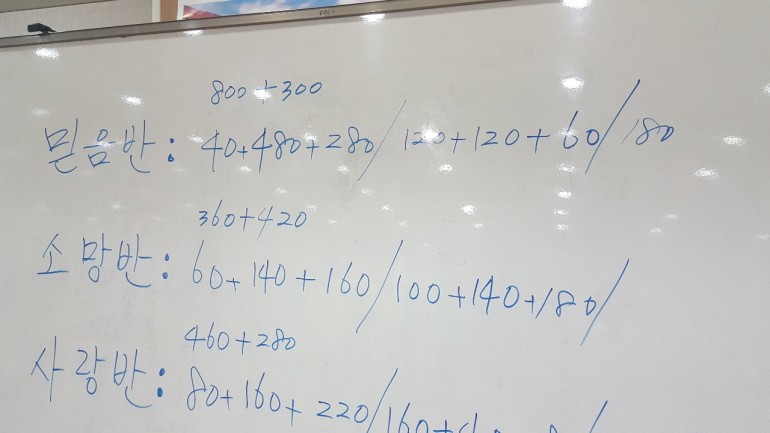 800+300
믿음반: 40+480+280/120+120+60/180
360+420
소망반: 60+140+160/100+140+180/
460+280
사랑반: 80+160+220/160+